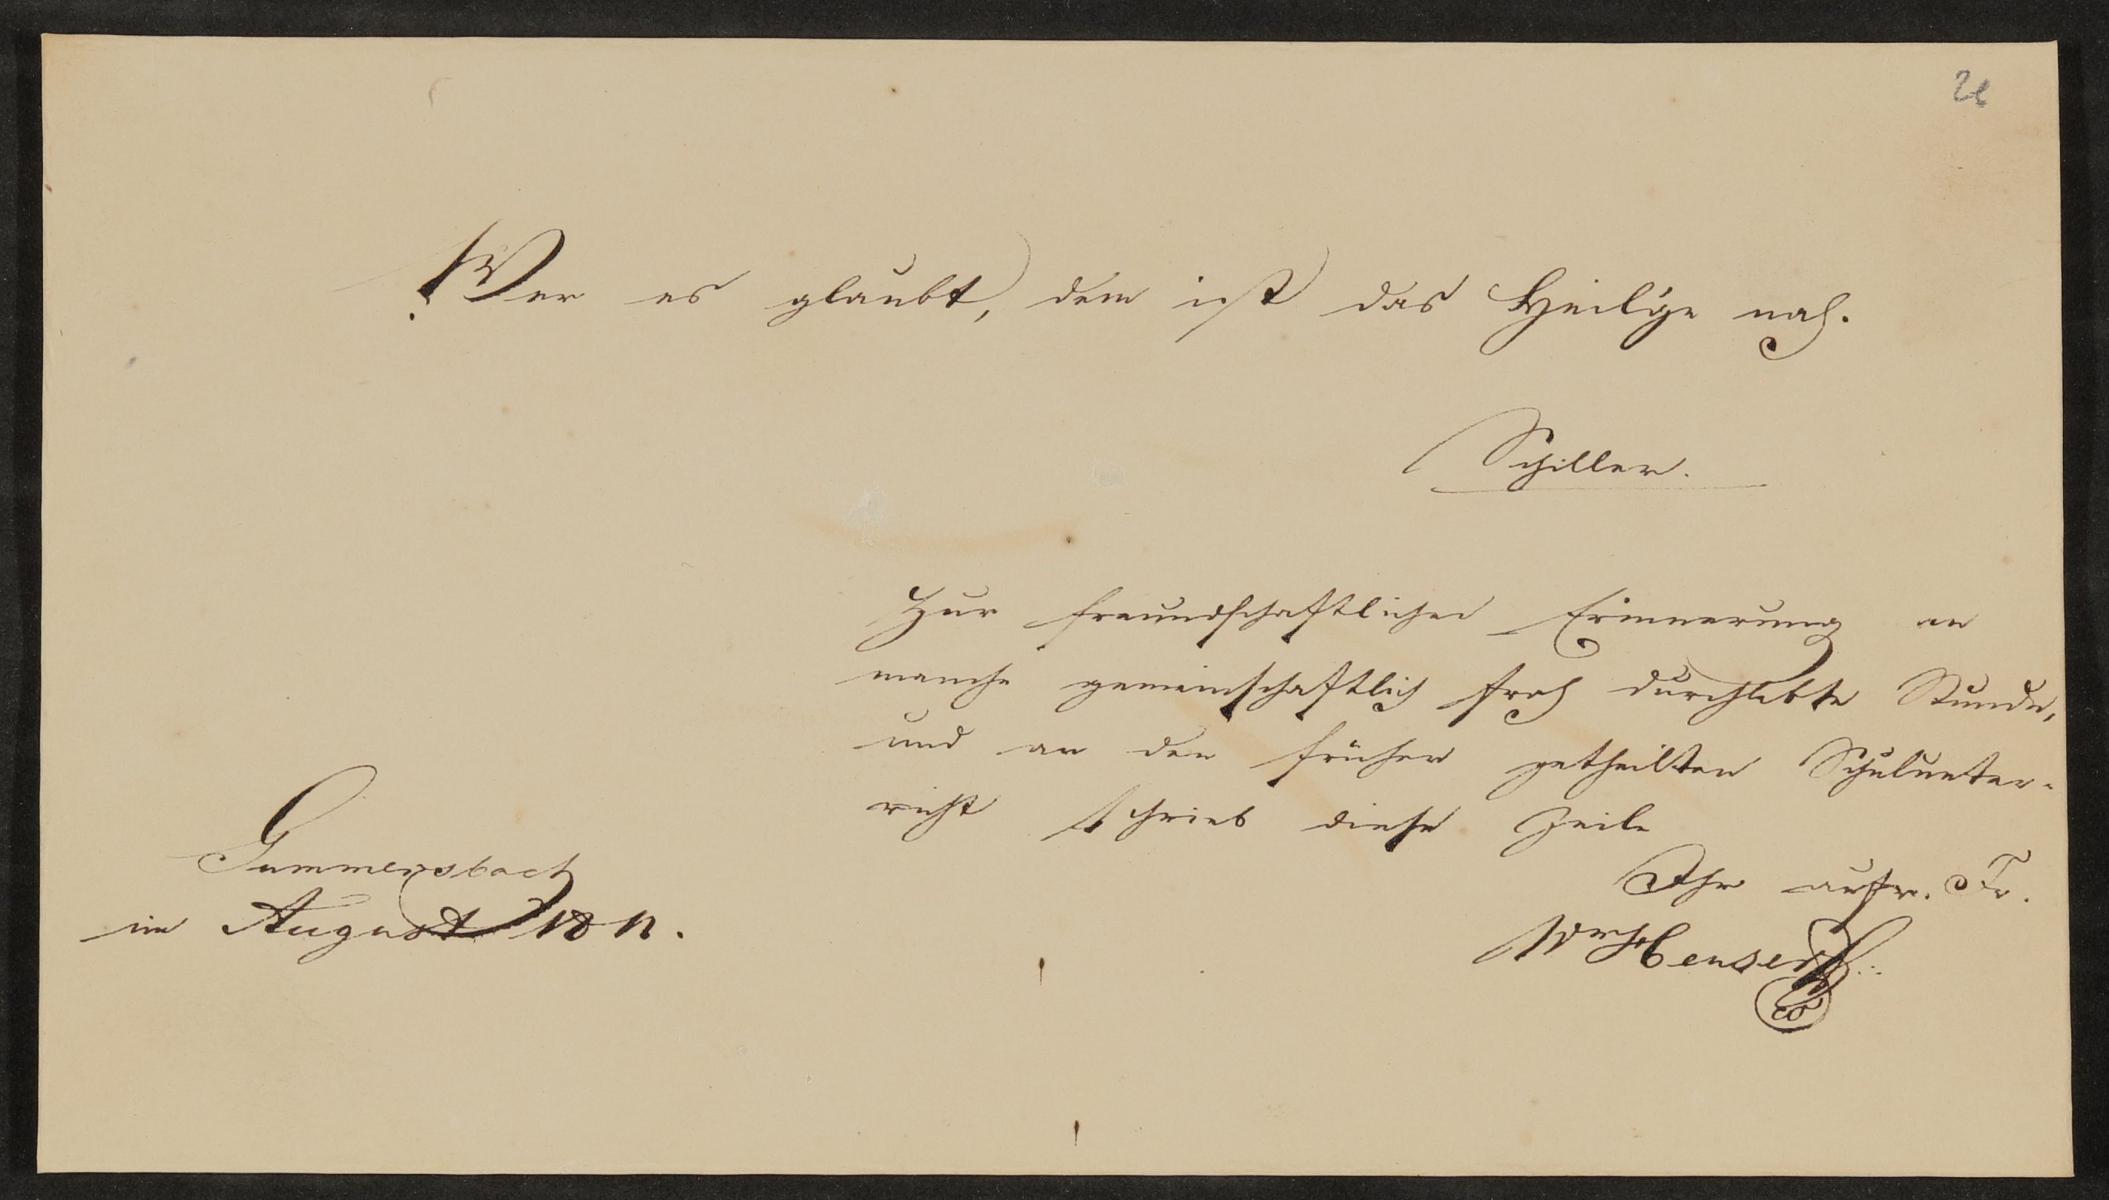 26
Wer es glaubt, dem ist das Heil'ge nah.
Schiller.
Zur freundschaftlichen Erinnerung an
manche gemeinschaftlich froh durchlebte Stunde,
und an den früher getheilten Schulunter-
richt schrieb diese Zeile
Ihr aufr. Fr.
Gummersbach
im August